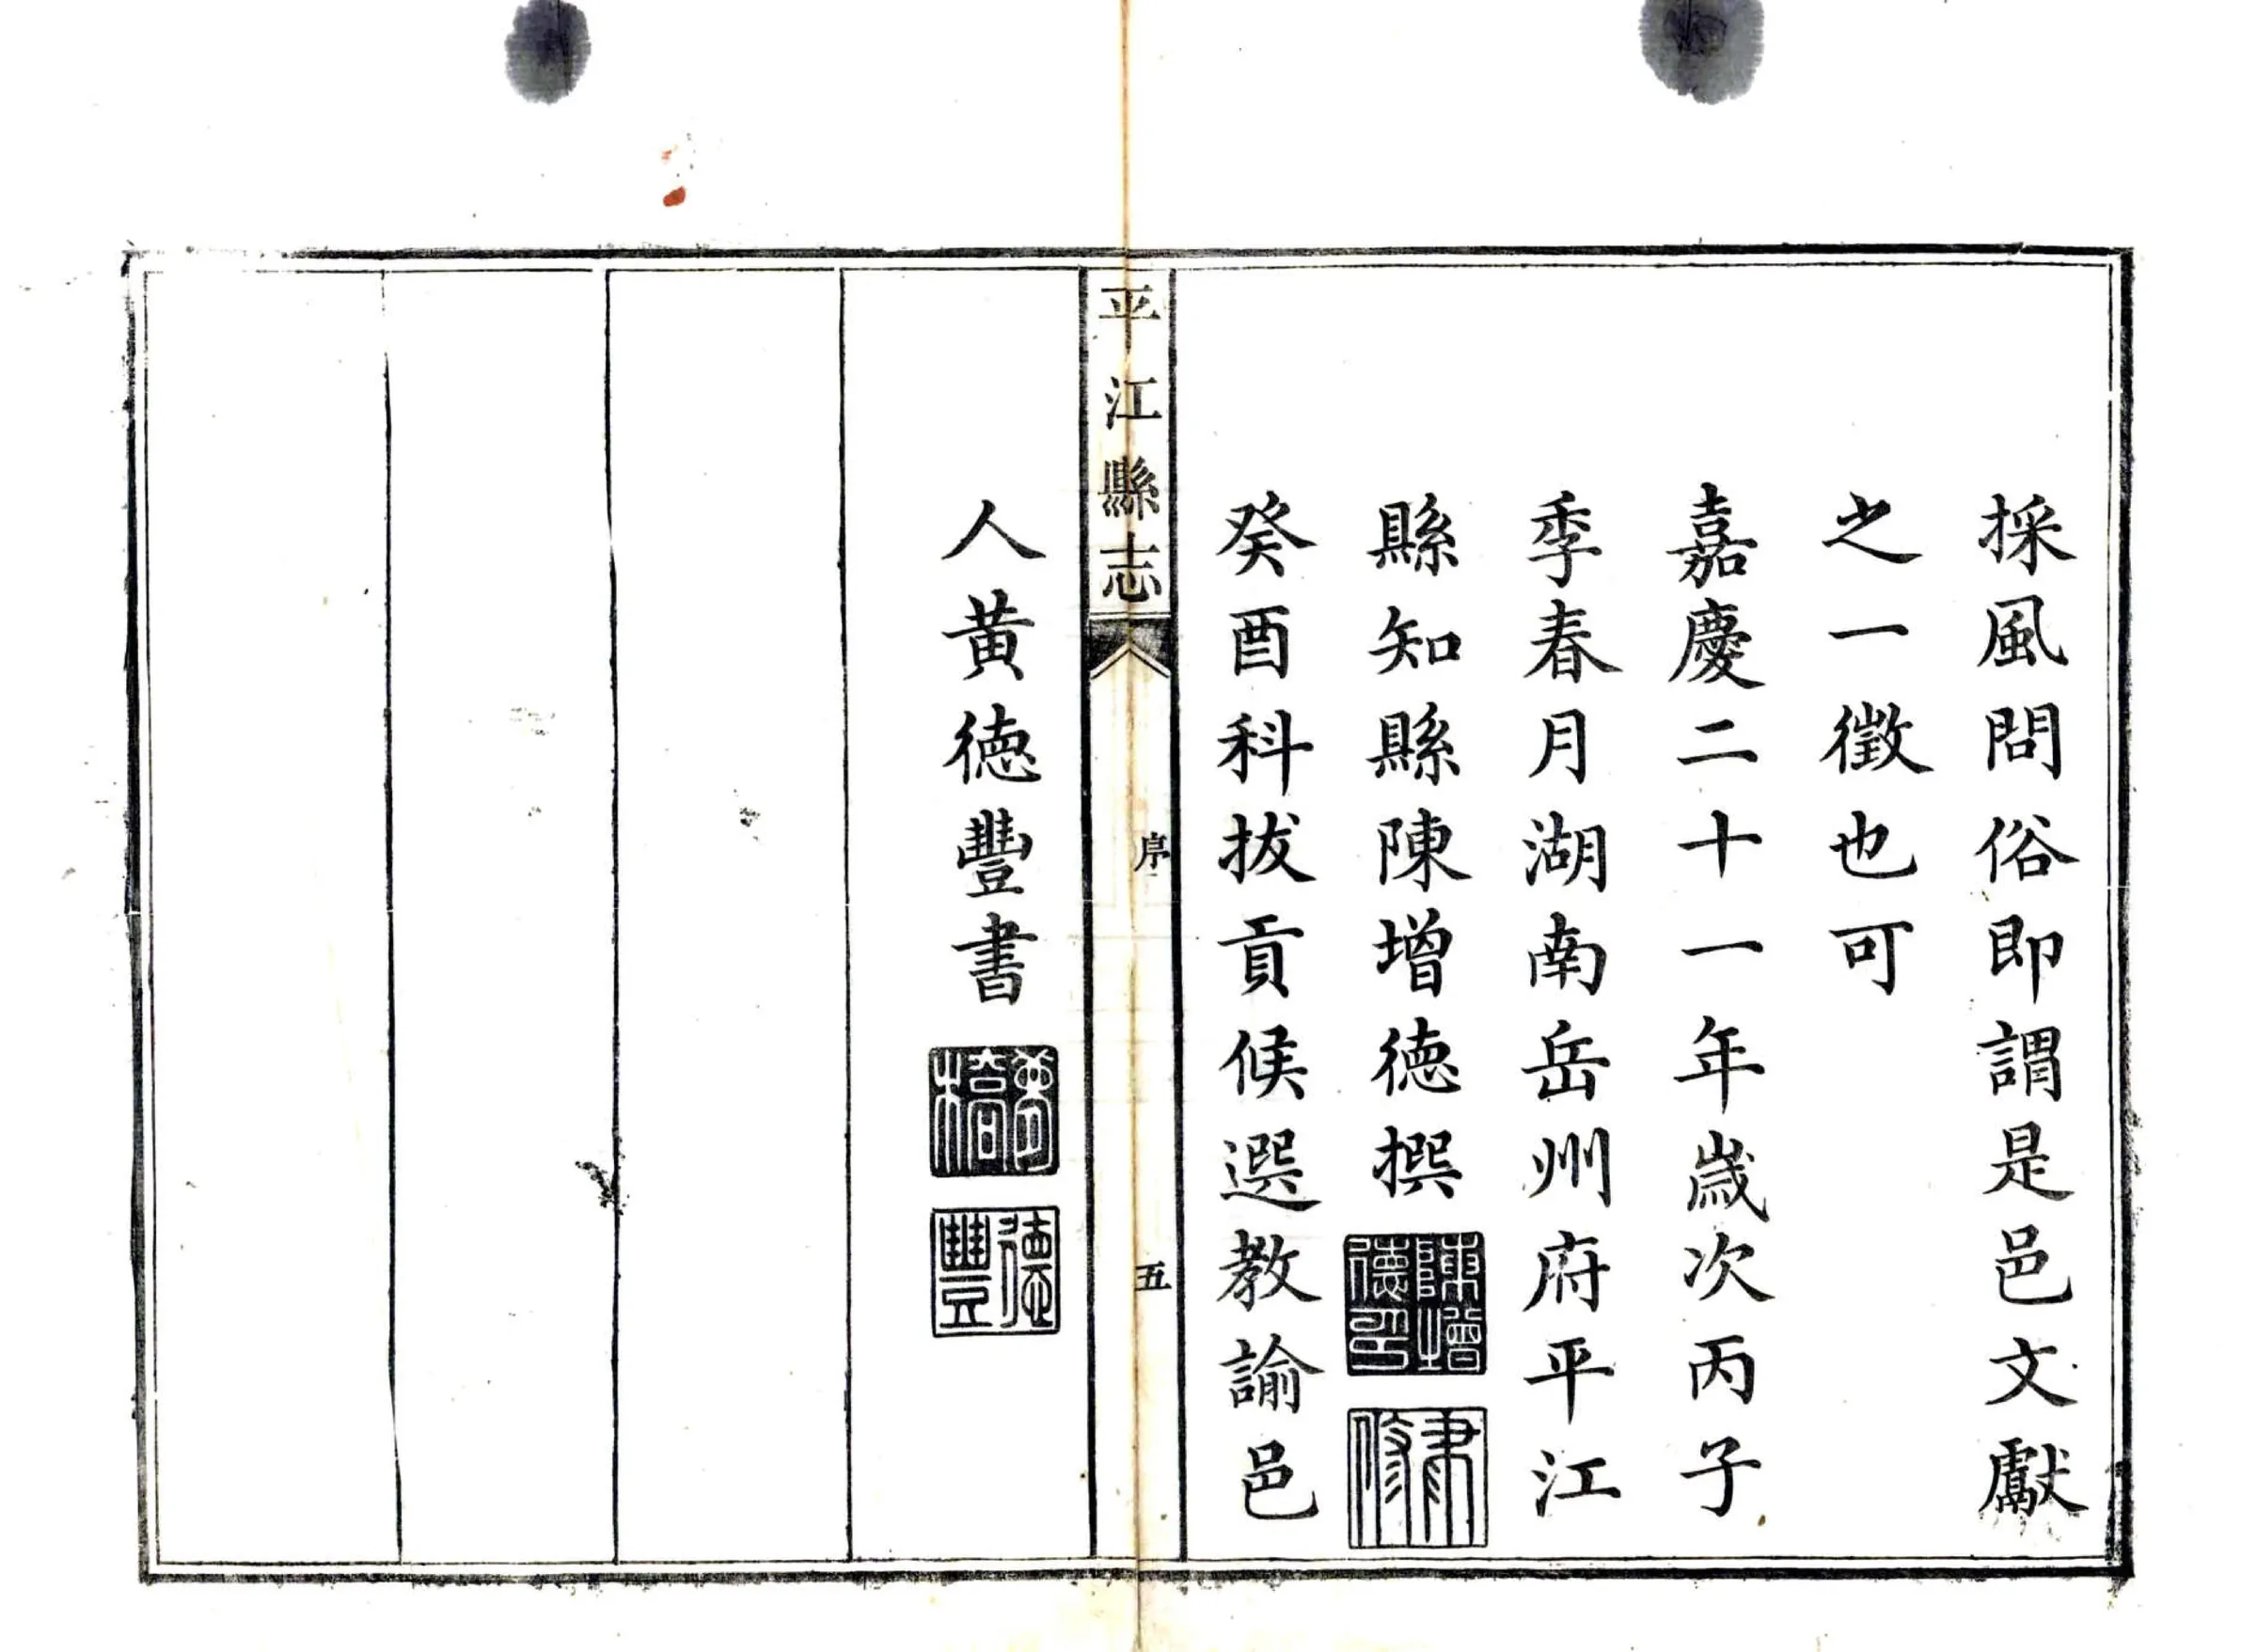 採風問俗即謂是邑文獻
之一徵也可
嘉慶二十一年歲次丙子
季春月湖南岳州府平江
縣知縣陳增德撰
陳增德印
聿修
癸酉科拔貢候選教諭邑
平江縣志
序
五
人黃德豐書
德豐